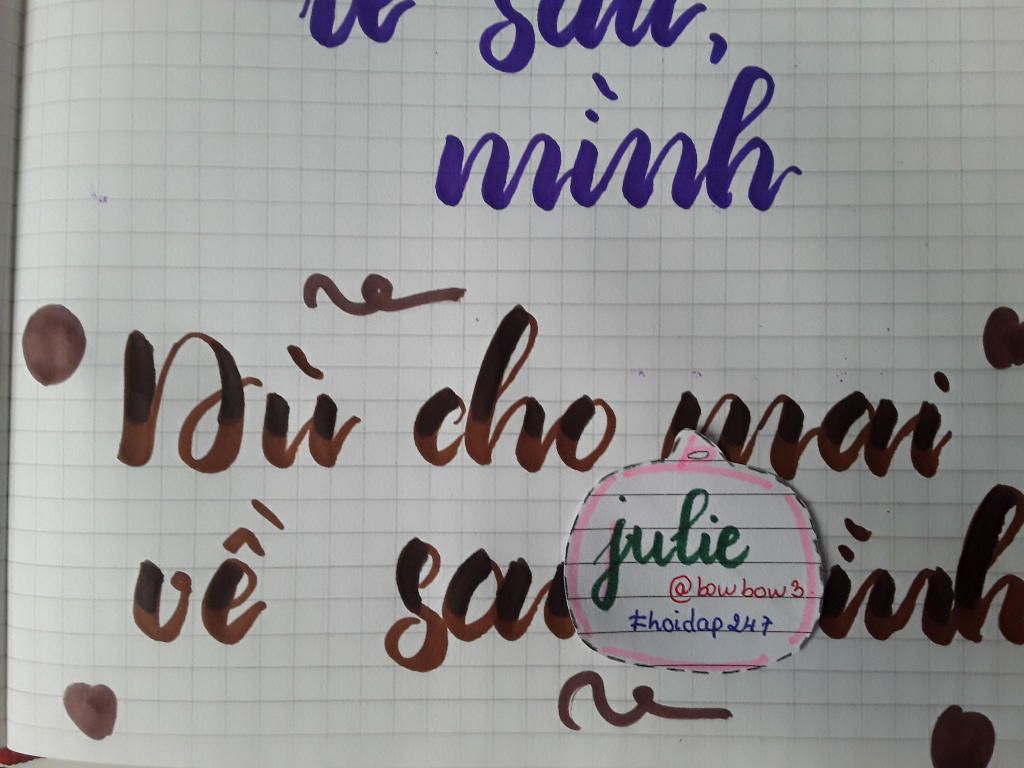 về sau,
mình
Dù cho mai
về sau ình
julie
@bowbow3
#hoidap247